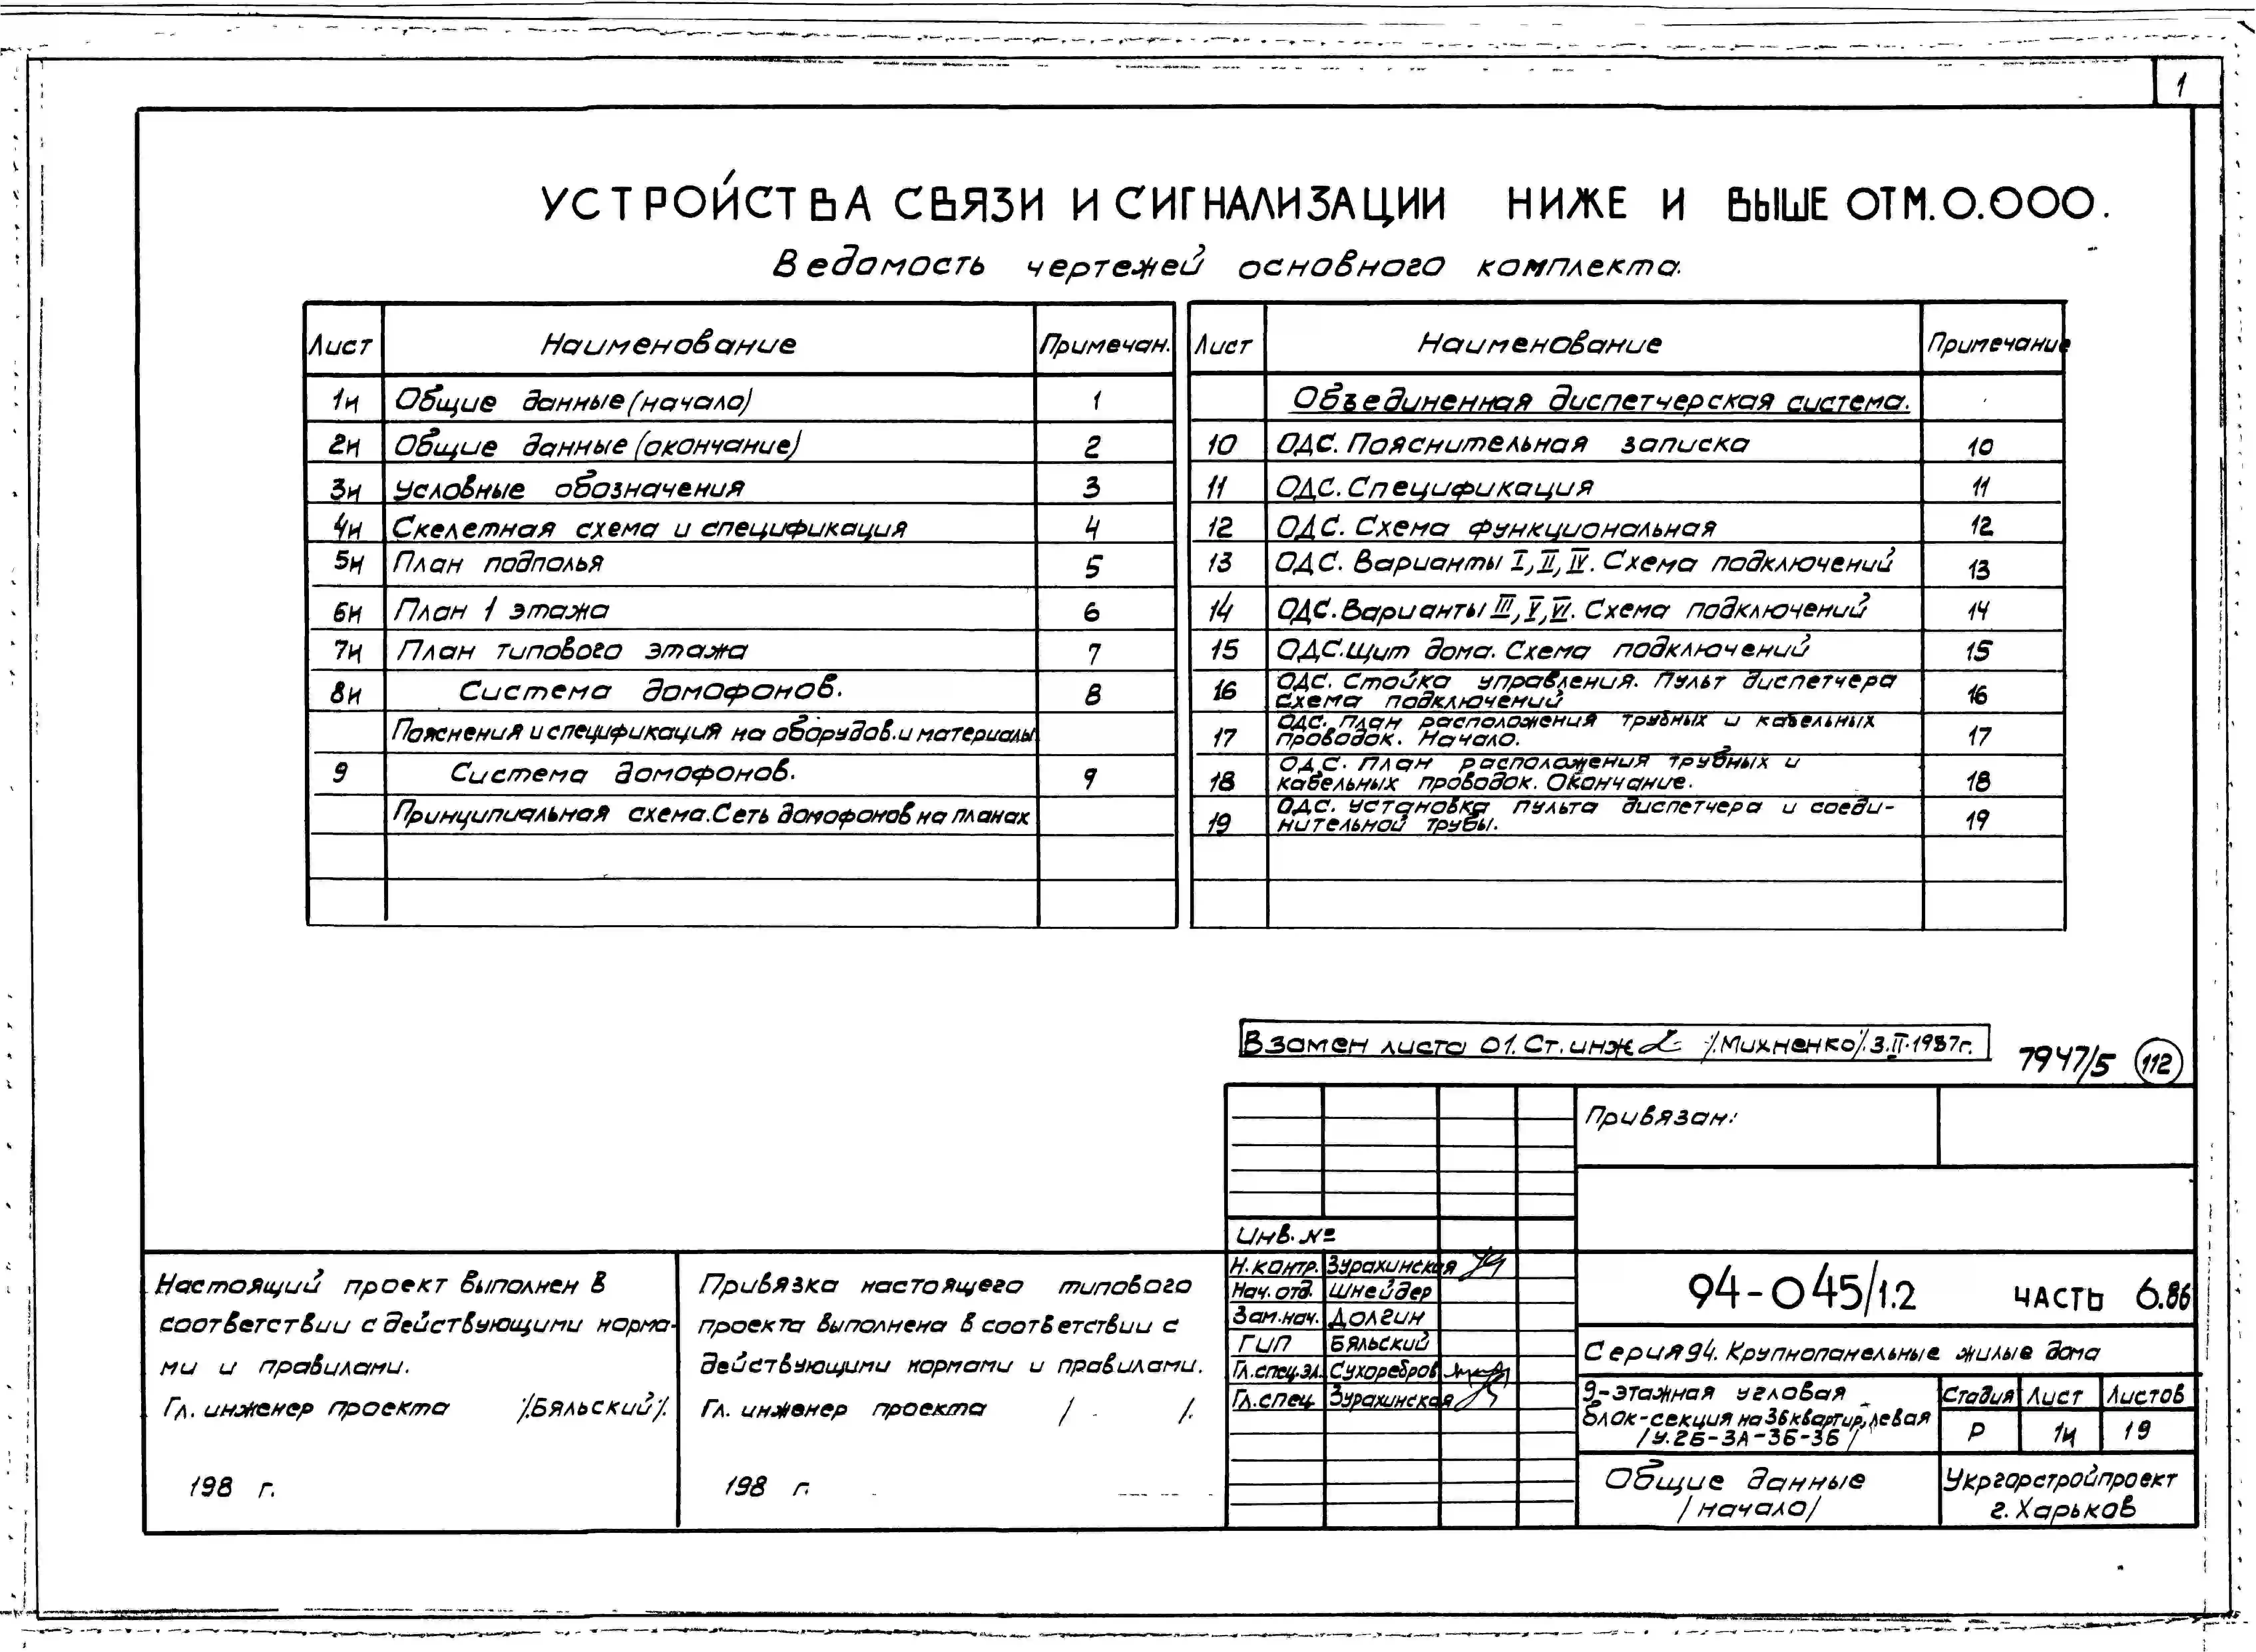 1
УСТРОЙСТВА СВЯЗИ И СИГНАЛИЗАЦИИ НИЖЕ И ВЫШЕ ОТМ. 0.000.
Ведомость чертежей основного комплекта.
Лист Наименование Примечан.
1и Общие данные (начало) 1
2и Общие данные (окончание) 2
3и Условные обозначения 3
4и Скелетная схема и спецификация 4
5и План подполья 5
6и План 1 этажа 6
7и План типового этажа 7
8и Система домофонов. 8
Пояснения и спецификация на оборудов. и материалы
9 Система домофонов. 9
Принципиальная схема. Сеть домофонов на планах
Лист Наименование Примечание
Объединенная диспетчерская система.
10 ОДС. Пояснительная записка 10
11 ОДС. Спецификация 11
12 ОДС. Схема функциональная 12
13 ОДС. Варианты I, II, IV. Схема подключений 13
14 ОДС. Варианты III, V, VI. Схема подключений 14
15 ОДС. Щит дома. Схема подключений 15
16 ОДС. Стойка управления. Пульт диспетчера 16
Схема подключений
17 ОДС. План расположения трубных и кабельных 17
проводок. Начало.
18 ОДС. План расположения трубных и 18
кабельных проводок. Окончание.
19 ОДС. Установка пульта диспетчера и соеди- 19
нительной трубы.
Взамен листа 01. Ст. инж /.Михненко/. 3.II.1987г.
7947/5 112
Привязан:
Инв. №
Н.контр. Зурахинская
Нач. отд. Шнейдер
Зам.нач. Долгин
ГИП Бяльский
Гл.спец.эл. Сухоребров
Гл.спец. Зурахинская
94-045/1.2 ЧАСТЬ 6.86
Серия 94. Крупнопанельные жилые дома
9-этажная угловая
блок-секция на 36 квартир, левая
/У.2Б-3А-3Б-3Б/
Стадия Лист Листов
Р 1и 19
Общие данные
/начало/
Укргорстройпроект
г. Харьков
Настоящий проект выполнен в
соответствии с действующими норма-
ми и правилами.
Гл. инженер проекта /.Бяльский/.
198 г.
Привязка настоящего типового
проекта выполнена в соответствии с
действующими нормами и правилами.
Гл. инженер проекта / /.
198 г.